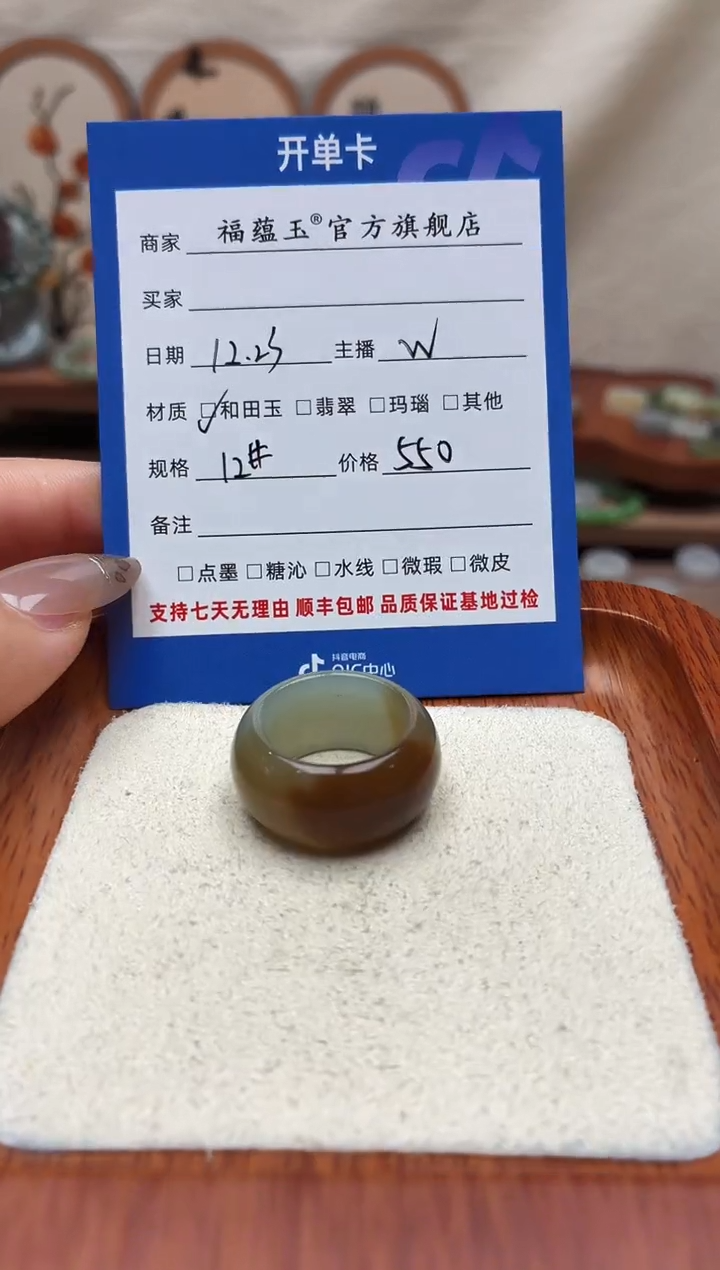 开单卡
商家 福蕴玉®官方旗舰店
买家
日期 12.23 主播 W
材质 ☑和田玉 □翡翠 □玛瑙 □其他
规格 12# 价格 550
备注
□点墨 □糖沁 □水线 □微瑕 □微皮
支持七天无理由 顺丰包邮 品质保证基地过检
抖音电商
QIC中心